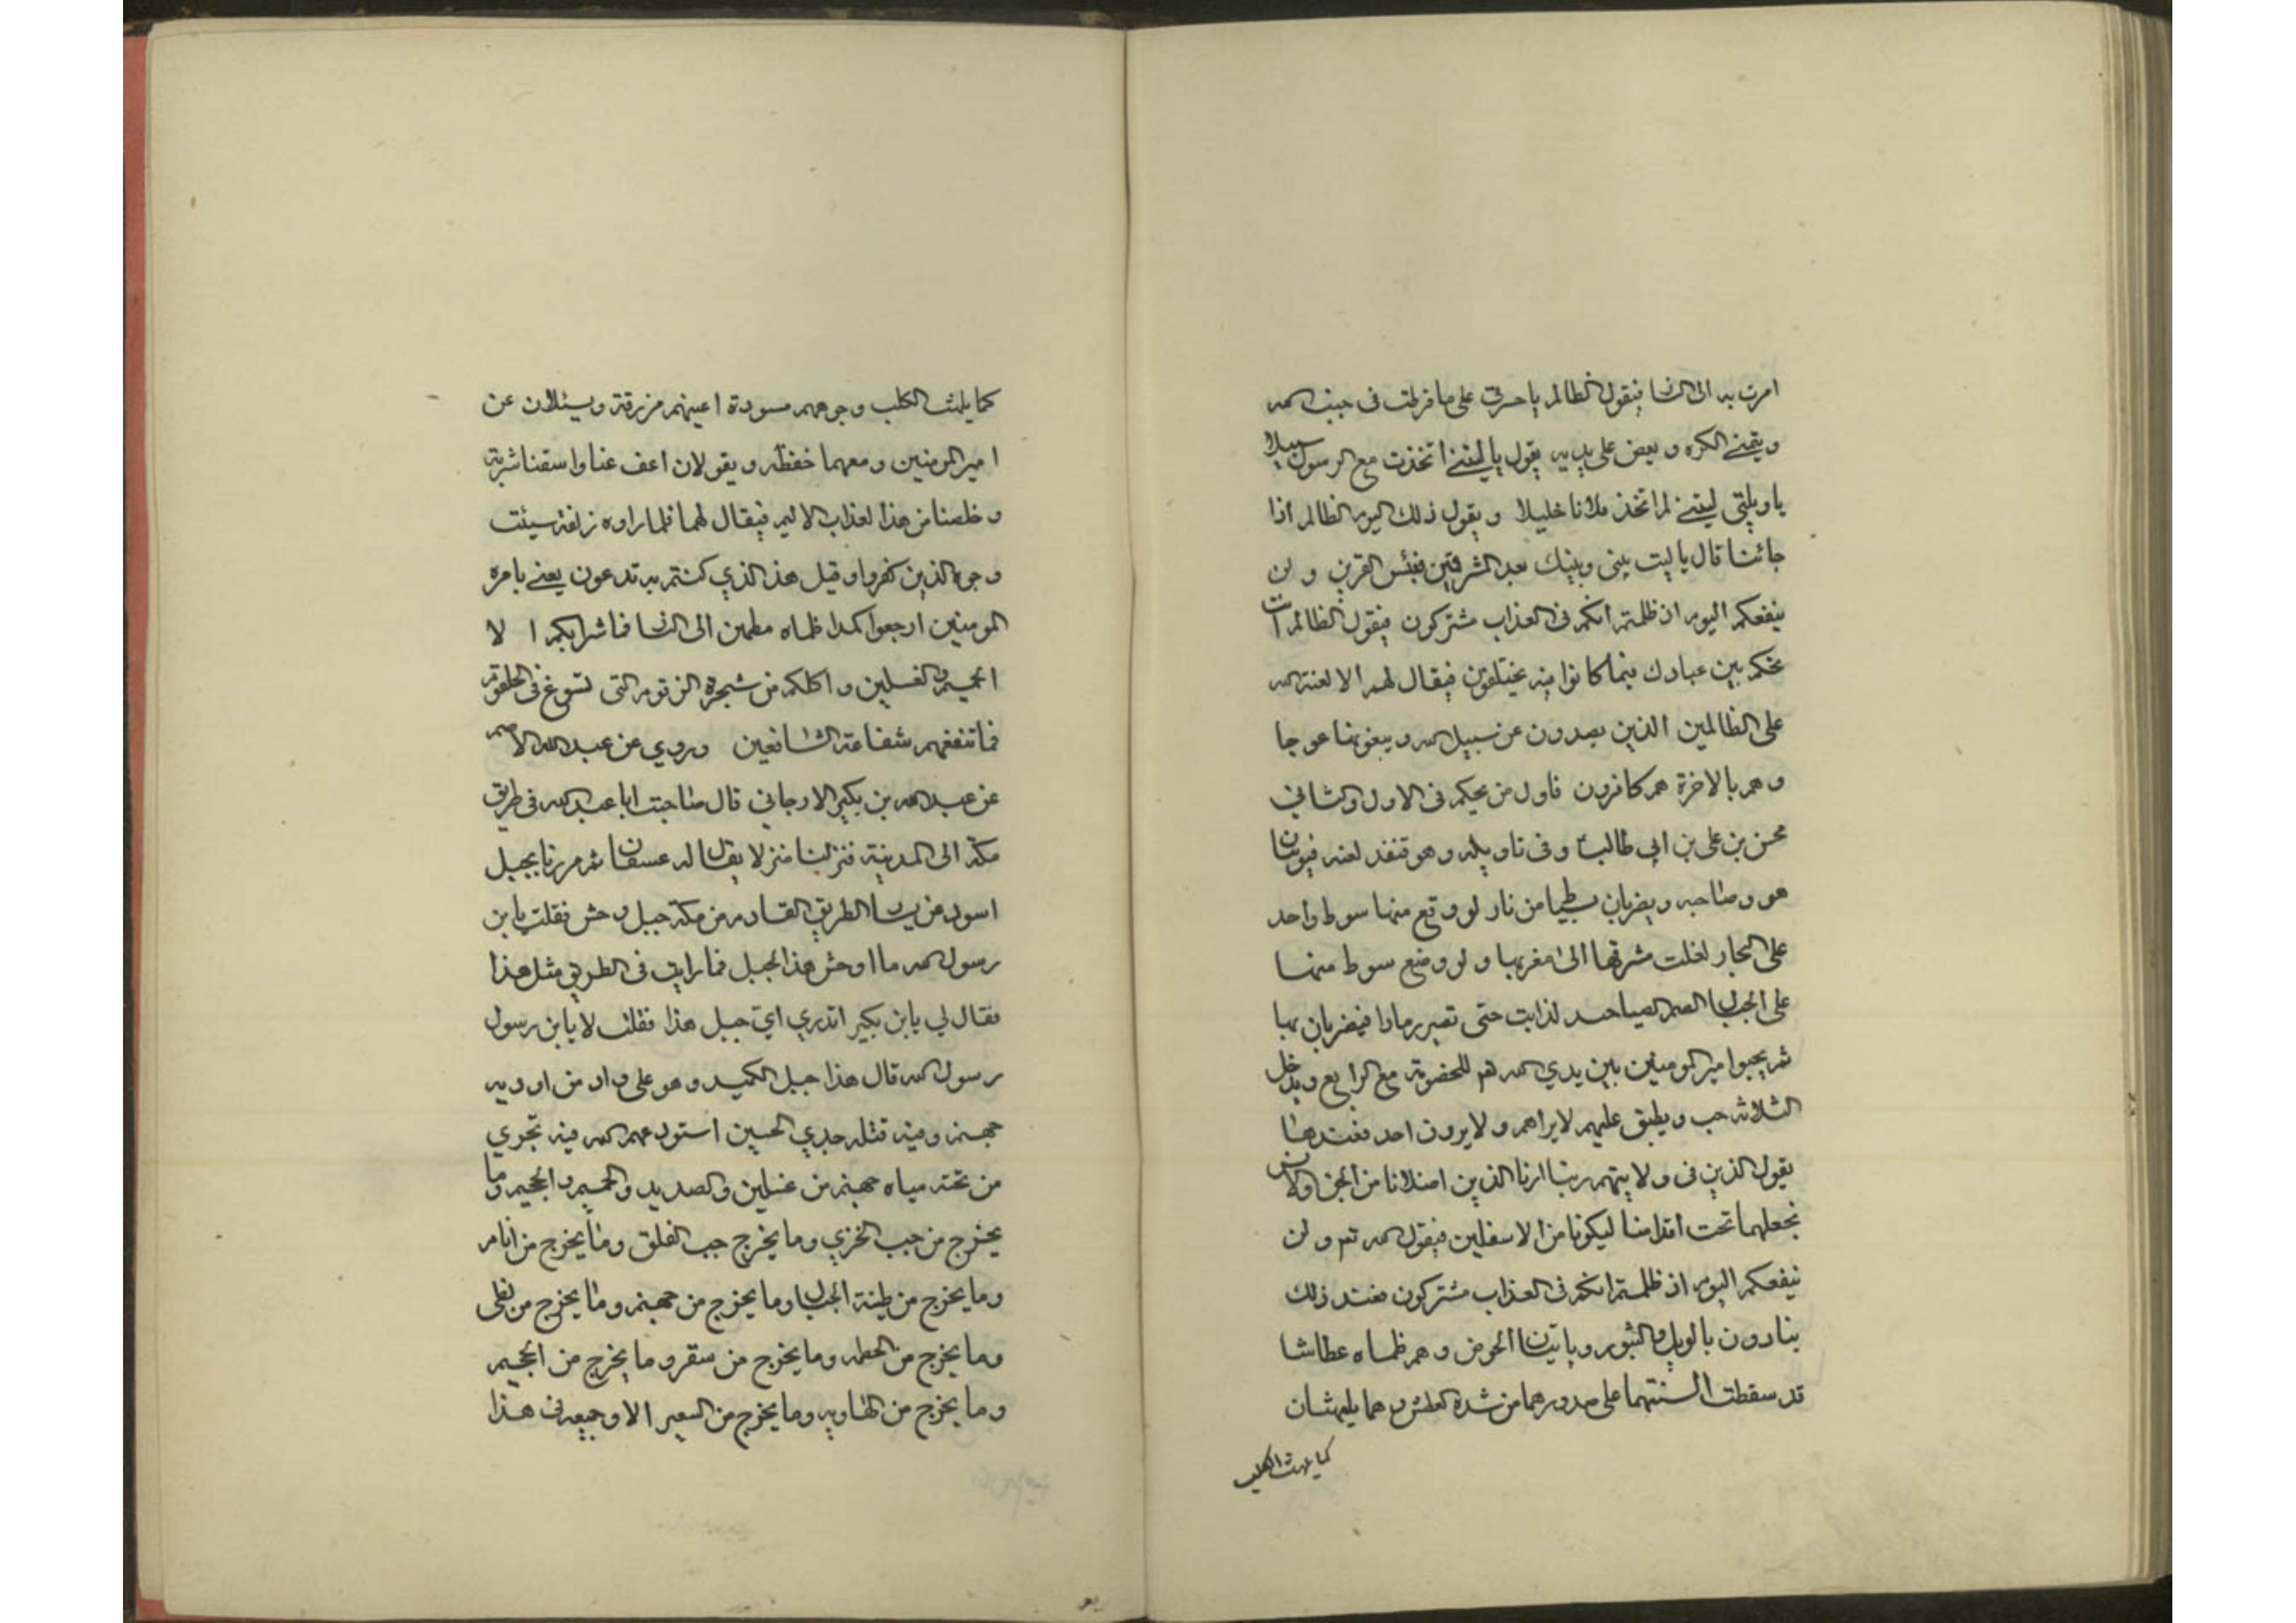 امرت به الى النار فيقول الظالم يا حسرتى على ما فرطت فى جنب الله
ويتمنى الكره و يعض على يديه يقول يا ليتنى اتخذت مع الرسول سبيلا
يا ويلتى ليتنى لم اتخذ فلانا خليلا و يقول ذلك اليوم الظالم اذا
جائنا قال يا ليت بينى وبينك بعد المشرقين فبئس القرين و لن
ينفعكم اليوم اذ ظلمتم انكم فى العذاب مشتركون فيقول الظالم انت
تحكم بين عبادك فيما كانوا فيه يختلفون فيقال لهم الا لعنة الله
على الظالمين الذين يصدون عن سبيل الله و يبغونها عوجا
و هم بالاخرة هم كافرون فاول من يحكم فى الاول والثانى
محسن بن على بن ابى طالب وفى تاويله و هو قنفذ لعنه فيوتيان
هو و صاحبه و يضربان بسطيا من نار لو وقع منها سوط واحد
على البحار لغلت مشرقها الى مغربها و لو وضع سوط منها
على الجبال الصم الصياخد لذابت حتى تصير رمادا فيضربان بها
ثم يجيوا مير المومنين بين يدي الله تم للخصومة مع الرابع ويدخل
الثلاثه جب ويطبق عليهم لا يراهم و لا يرون احد فعندها
يقول الذين فى ولايتهم ربنا ارنا الذين اضلانا من الجن والانس
نجعلهما تحت اقدامنا ليكونا من الاسفلين فيقول الله تم و لن
ينفعكم اليوم اذ ظلمتم انكم فى العذاب مشتركون فعند ذلك
ينادون بالويل والثبور وياتيان الحوض و هم ظماه عطاشا
قد سقطت السنتهما على صدورهما من شدة العطش و هما يلهثان
كما يلهث الكلب
كما يلهث الكلب وجوههم مسودة اعينهم مزرقة ويسئلان عن
امير المومنين و معهما حفظه و يقولان اعف عنا واسقنا شربة
و خلصنا من هذا لعذاب الاليم فيقال لهما فلما راوه زلفة سيئت
وجوه الذين كفروا و قيل هذ الذي كنتم به تدعون يعنى بامره
المومنين ارجعوا كمدا ظماه مطمين الى النار فما شرابكم ا لا
الحميم والغسلين و اكلكم من شجرة الزقوم التى تسوغ فى الحلقوم
فما تنفعهم شفاعة الشافعين وروي عن عبد الله الاصم
عن عبد الله بن بكير الارجاني قال صاحبت ابا عبد الله فى طريق
مكة الى المدينة فنزلنا منزلا يقال له عسفان ثم مررنا بجبل
اسود من يسار الطريق القادم من مكة جبل وحش فقلت يا بن
رسول الله ما اوحش هذ الجبل فما رايت فى الطريق مثل هذا
فقال لي يا بن بكير اتدري اي جبل هذا فقلت لا يا بن رسول
رسول الله قال هذا جبل الكميد و هو على واد من اوديه
جهنم وفيه قتله جدي الحسين استودعهم الله فيه تجري
من تحته مياه جهنم من غسلين والصديد والحميم والجحيم وما
يخرج من جب الخزي وما يخرج جب الفلق وما يخرج من اثام
وما يخرج من طينة الخبال وما يخرج من جهنم وما يخرج من لظى
وما يخرج من الحطمه وما يخرج من سقر وما يخرج من الجحيم
وما يخرج من الهاويه وما يخرج من السعير الا وجميعه فى هذا